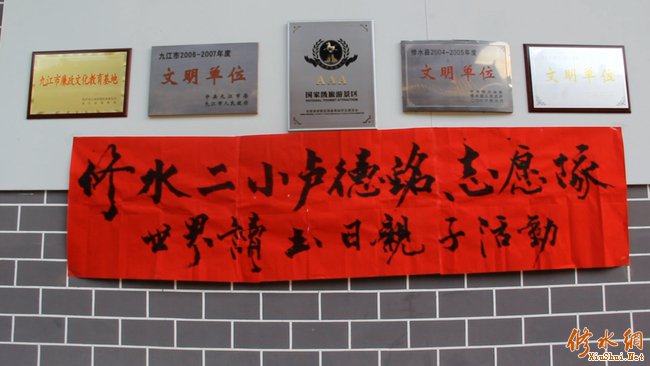 九江市廉政文化教育基地
九江市2006-2007年度
文明单位
中共九江市委
九江市人民政府
AAA
国家级旅游景区
NATIONAL TOURIST ATTRACTION
修水县2004-2005年度
文明单位
文明单位
修水二小卢德铭志愿队
世界讀書日親子活動
修水網
XiuShui.Net